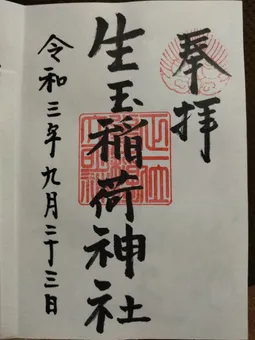 奉拝
生玉稲荷神社
令和三年九月二十三日